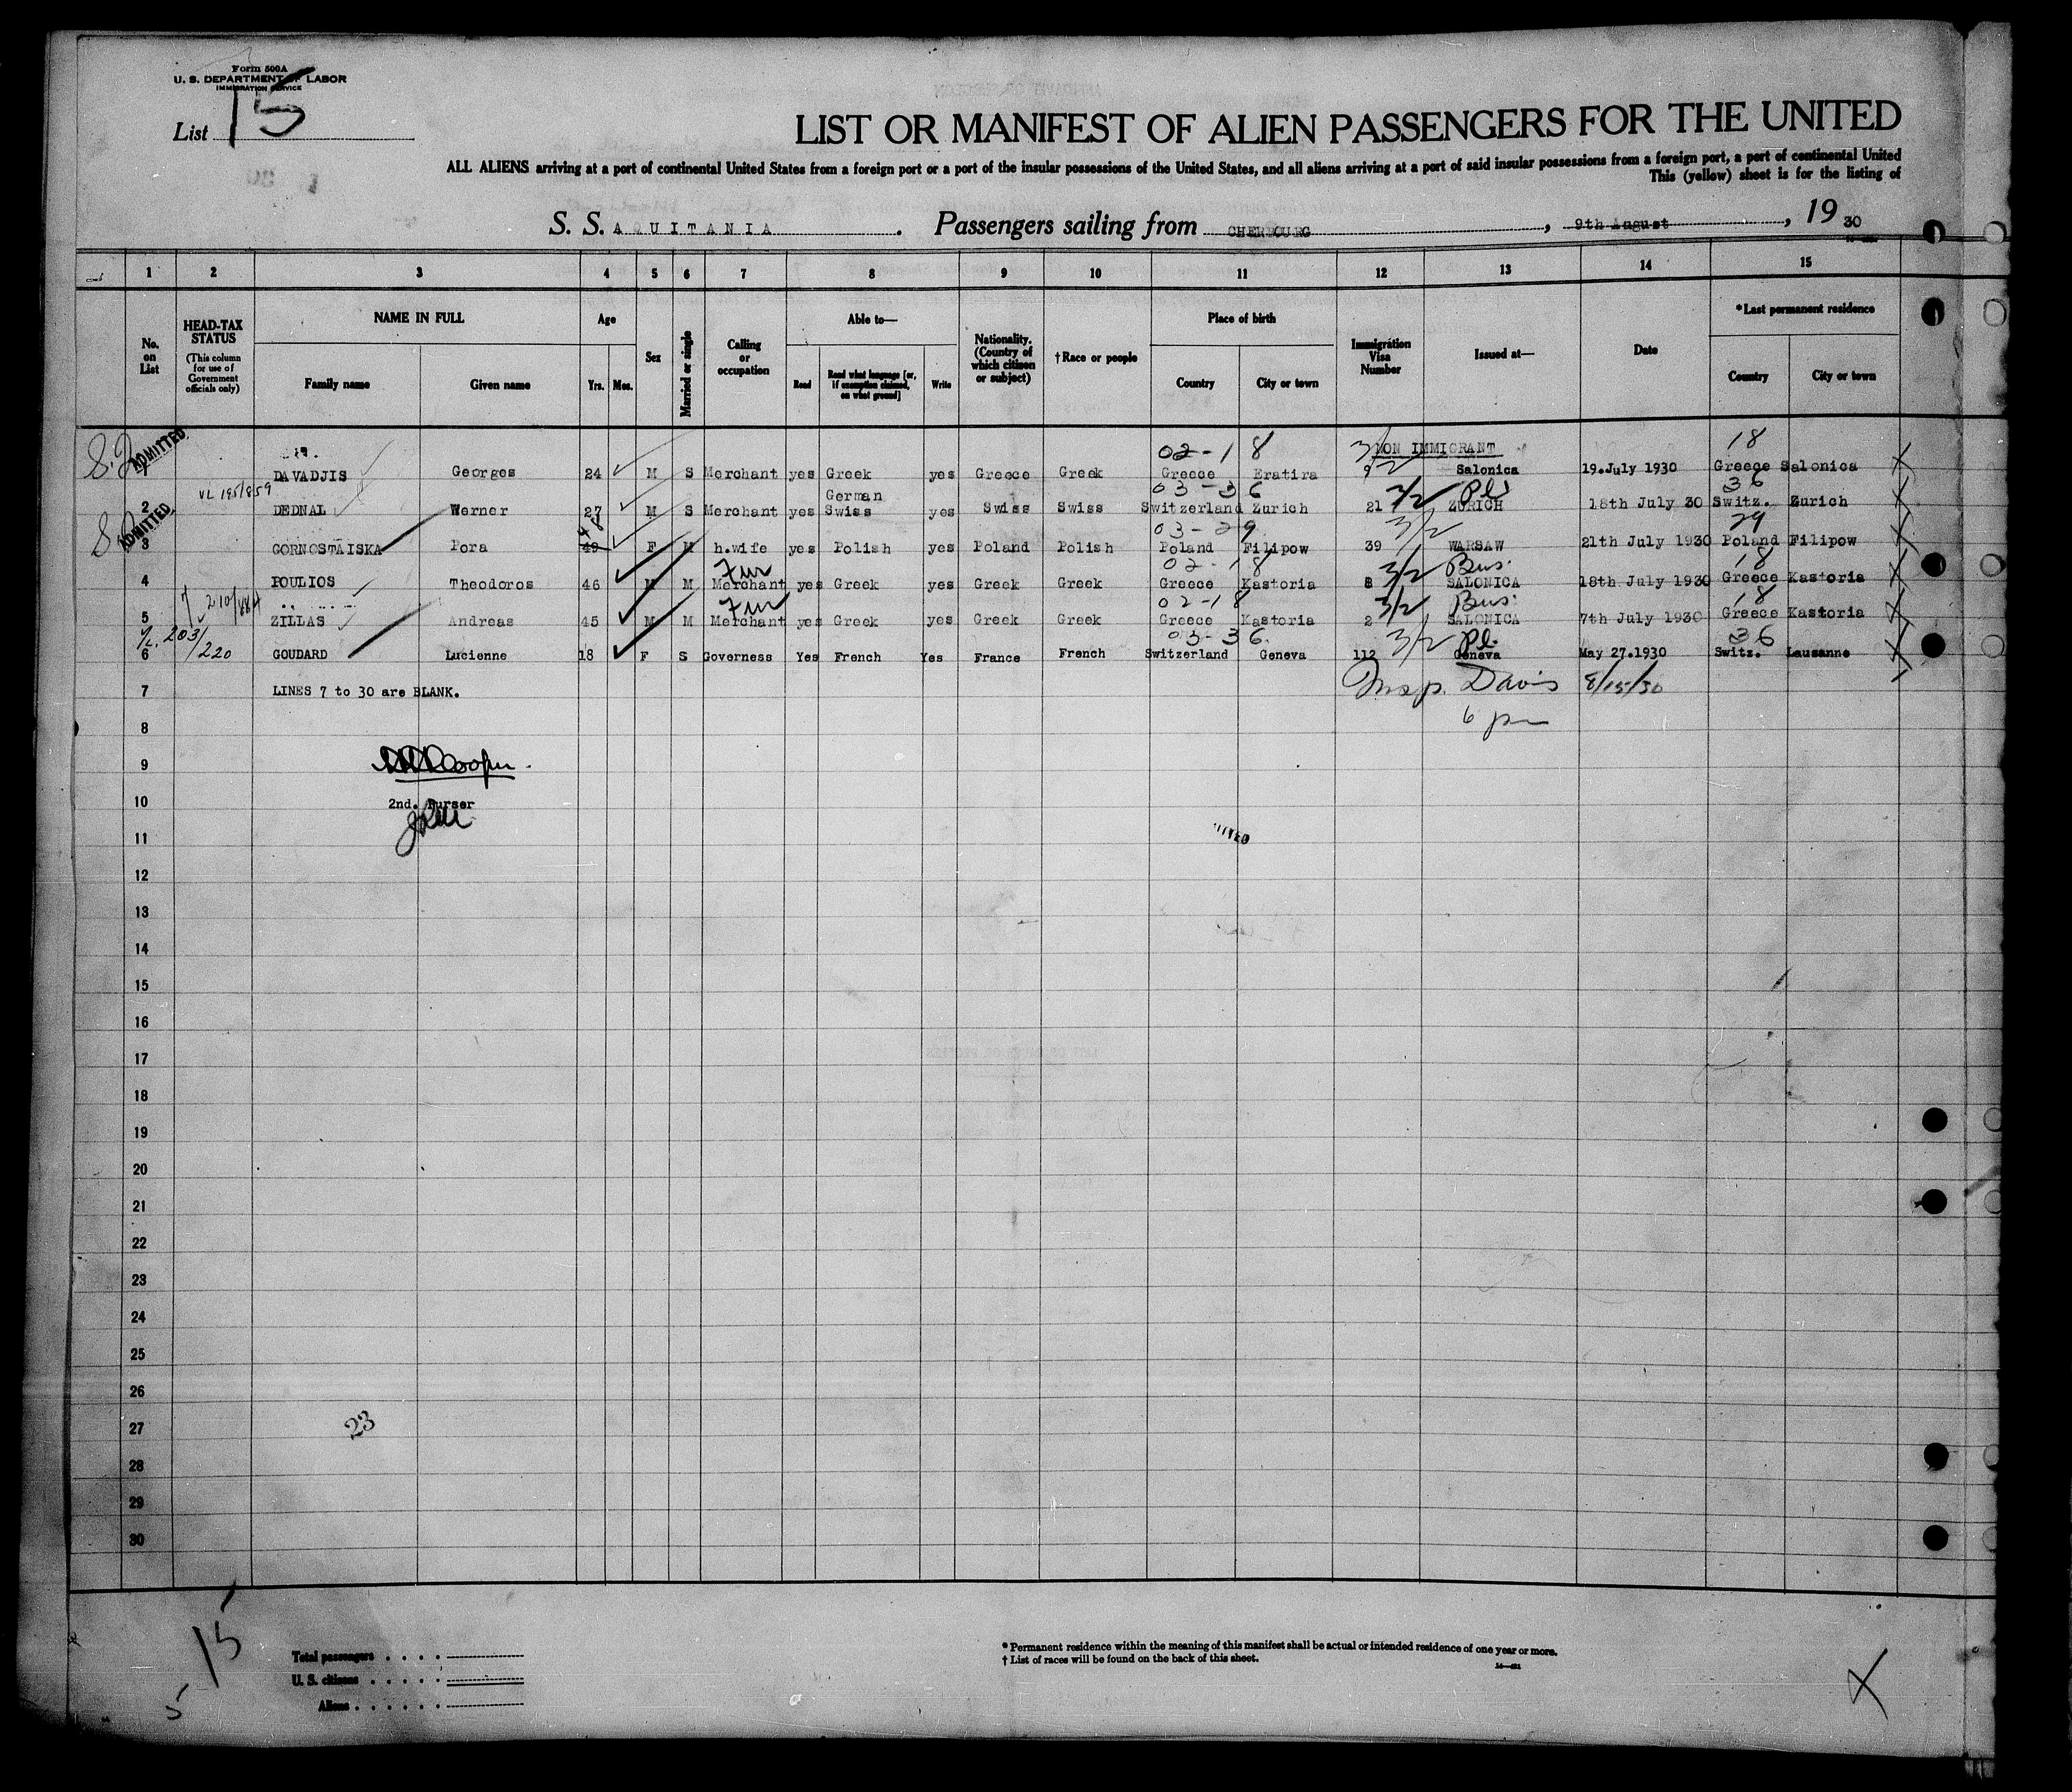 Form 500A
U. S. DEPARTMENT OF LABOR
IMMIGRATION SERVICE
List 15
LIST OR MANIFEST OF ALIEN PASSENGERS FOR THE UNITED
ALL ALIENS arriving at a port of continental United States from a foreign port or a port of the insular possessions of the United States, and all aliens arriving at a port of said insular possessions from a foreign port, a port of continental United
This (yellow) sheet is for the listing of
S. S. AQUITANIA . Passengers sailing from CHERBOURG , 9th August , 19 30
1 2 3 4 5 6 7 8 9 10 11 12 13 14 15
No. on List
HEAD-TAX STATUS (This column for use of Government officials only)
NAME IN FULL Family name Given name
Age Yrs. Mos.
Sex
Married or single
Calling or occupation
Able to— Read Read what language [or, if exemption claimed, on what ground] Write
Nationality. (Country of which citizen or subject)
†Race or people
Place of birth Country City or town
Immigration Visa Number
Issued at—
Date
*Last permanent residence Country City or town
ADMITTED 02-18 3/2 NON IMMIGRANT 18
1 DAVADJIS Georges 24 M S Merchant yes Greek yes Greece Greek Greece Eratira 9 Salonica 19.July 1930 Greece Salonica
VL 195/859 German 03-36 3/2 Pl 36
2 DEDNAL Werner 27 M S Merchant yes Swiss yes Swiss Swiss Switzerland Zurich 21 ZURICH 18th July 30 Switz. Zurich
ADMITTED 48 03-29 3/2 29
3 GORNOSTAISKA Pora 49 F M h.wife yes Polish yes Poland Polish Poland Filipow 39 WARSAW 21th July 1930 Poland Filipow
Fur 02-18 3/2 Bus. 18
4 POULIOS Theodoros 46 M M Merchant yes Greek yes Greek Greek Greece Kastoria 8 SALONICA 18th July 1930 Greece Kastoria
210/884 Fur 02-18 3/2 Bus. 18
5 ZILLAS Andreas 45 M M Merchant yes Greek yes Greek Greek Greece Kastoria 2 SALONICA 7th July 1930 Greece Kastoria
203/220 03-36. 3/2 Pl. 36
6 GOUDARD Lucienne 18 F S Governess Yes French Yes France French Switzerland Geneva 112 Geneva May 27.1930 Switz. Lausanne
7 LINES 7 to 30 are BLANK. Insp. Davis 8/15/30
8 6 pm
9 Cooper.
10 2nd. Purser
11
12
13
14
15
16
17
18
19
20
21
22
23
24
25
26
27 23
28
29
30
15
5
Total passengers . . . .
U. S. citizens . . . . .
Aliens . . . . . .
* Permanent residence within the meaning of this manifest shall be actual or intended residence of one year or more.
† List of races will be found on the back of this sheet.
X